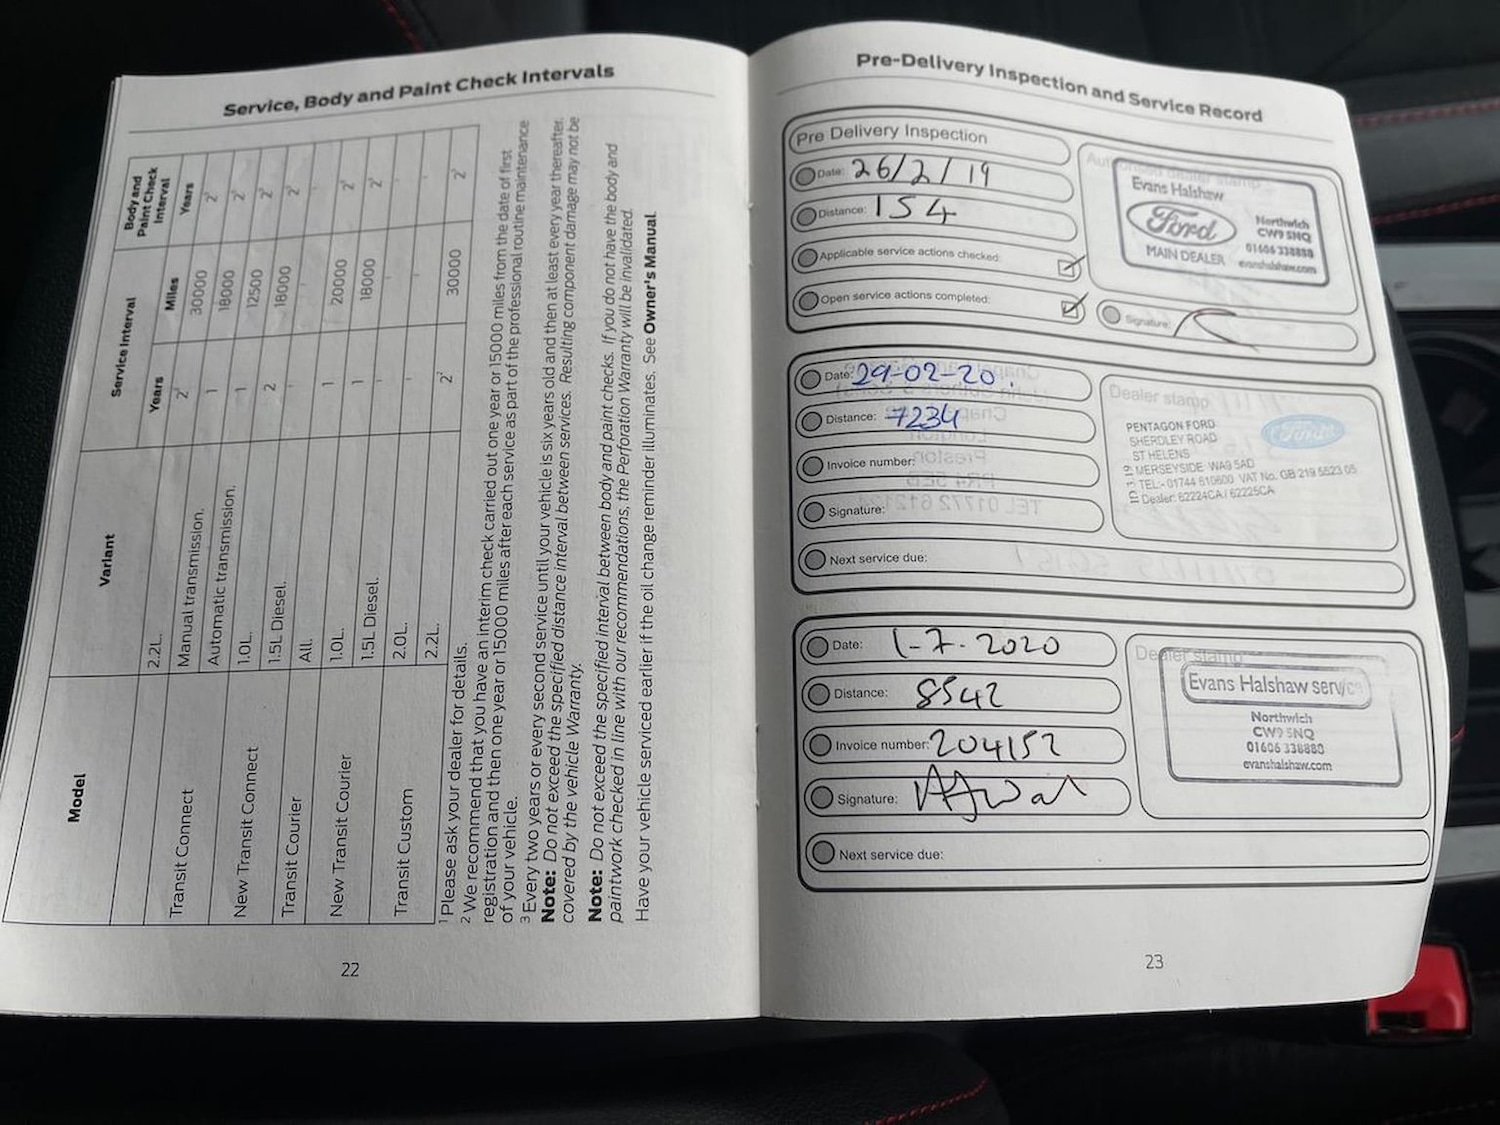 Service, Body and Paint Check Intervals
Model
Variant
Service Interval
Body and Paint Check Interval
Years
Miles
Years
2.2L.
Transit Connect
Manual transmission.
2¹
30000
2¹
Automatic transmission.
1
18000
2¹
New Transit Connect
1.0L.
1
12500
2¹
1.5L Diesel.
2
18000
2¹
Transit Courier
All.
New Transit Courier
1.0L.
1
20000
2¹
1.5L Diesel.
1
18000
2¹
Transit Custom
2.0L.
2.2L.
2²
30000
2¹
¹ Please ask your dealer for details.
² We recommend that you have an interim check carried out one year or 15000 miles from the date of first
registration and then one year or 15000 miles after each service as part of the professional routine maintenance
of your vehicle.
³ Every two years or every second service until your vehicle is six years old and then at least every year thereafter.
Note: Do not exceed the specified distance interval between services. Resulting component damage may not be
covered by the vehicle Warranty.
Note: Do not exceed the specified interval between body and paint checks. If you do not have the body and
paintwork checked in line with our recommendations, the Perforation Warranty will be invalidated.
Have your vehicle serviced earlier if the oil change reminder illuminates. See Owner's Manual
22
Pre-Delivery Inspection and Service Record
Pre Delivery Inspection
Date: 26/2/19
Distance: 154
Applicable service actions checked:
Open service actions completed:
Authorised dealer stamp
Evans Halshaw
Ford
MAIN DEALER
Northwich
CW9 5NQ
01606 338880
evanshalshaw.com
Signature:
Date: 29-02-20.
Distance: 7234
Invoice number:
Signature:
Next service due:
Dealer stamp
PENTAGON FORD
SHERDLEY ROAD
ST HELENS
MERSEYSIDE WA9 5AD
TEL:- 01744 610600 VAT No. GB 219 5523 05
Dealer: 62224CA / 62225CA
Ford
Date: 1-7-2020
Distance: 8542
Invoice number: 204152
Signature:
Next service due:
Dealer stamp
Evans Halshaw service
Northwich
CW9 5NQ
01606 338880
evanshalshaw.com
23